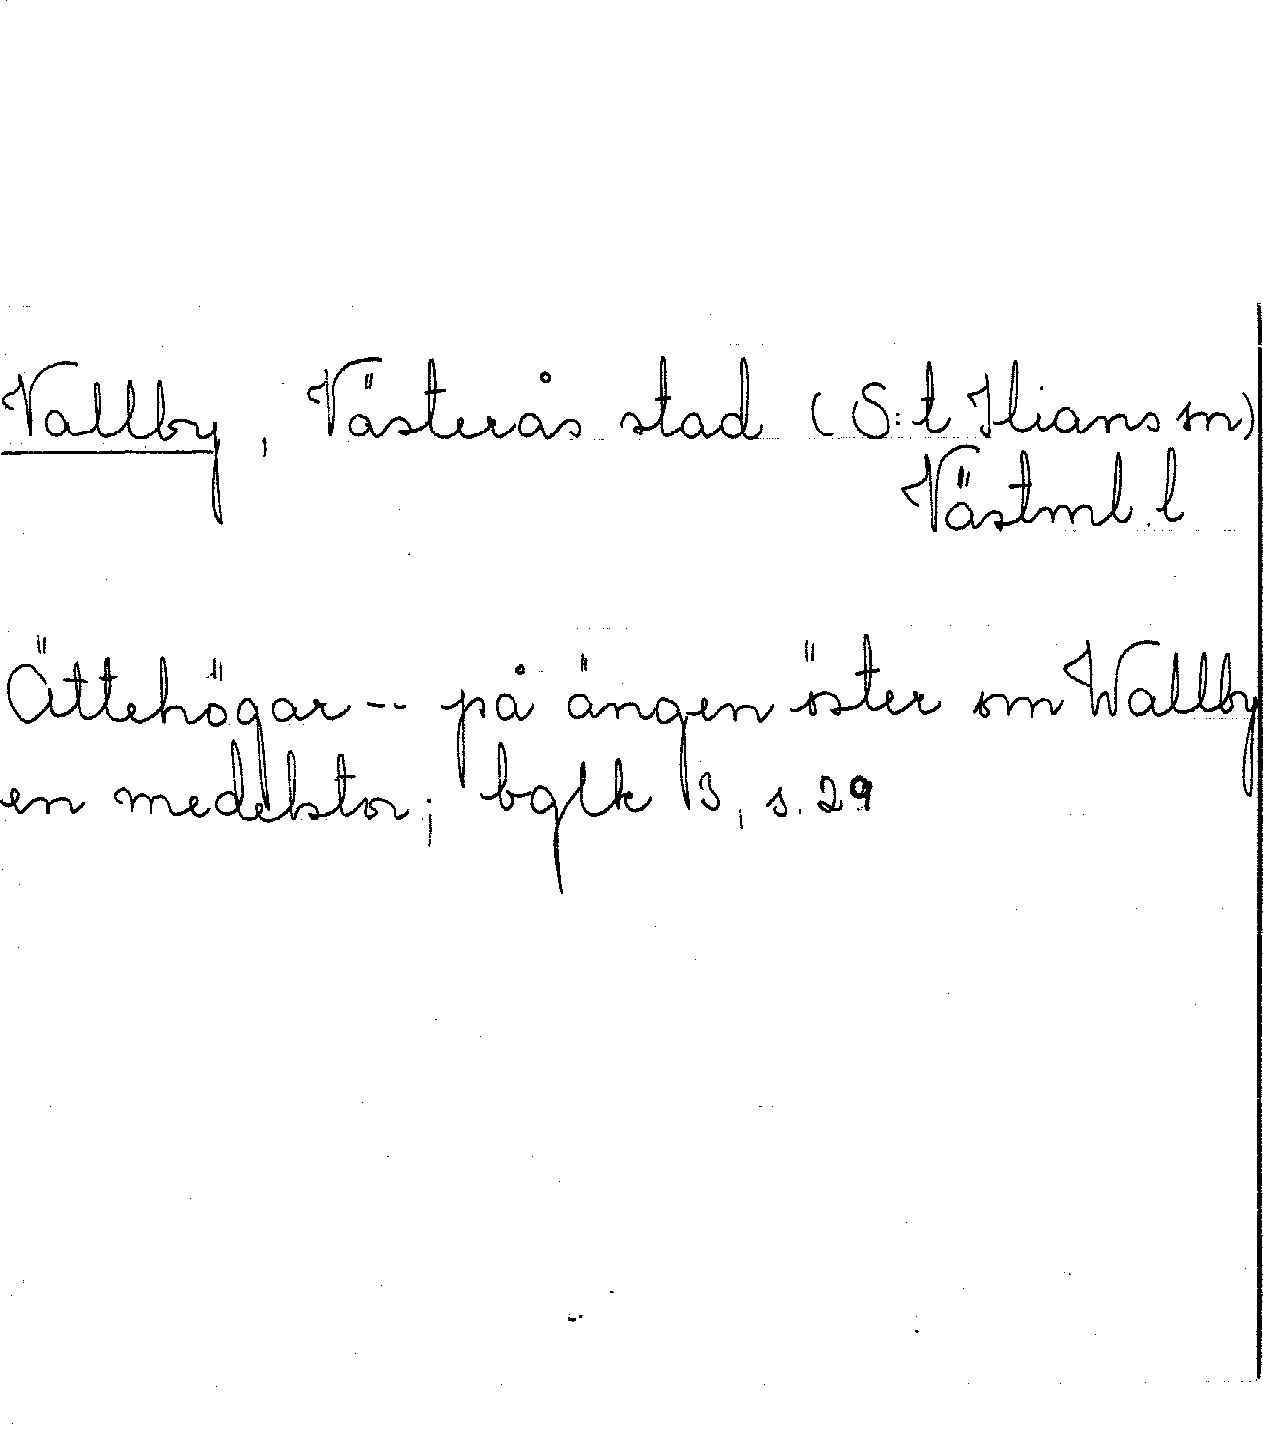 Vallby, Västerås stad (S:t Ilians sn)
Västml. l
Ättehögar -- på ängen öster om Wallby
en medelstor; bglk 3, s. 29